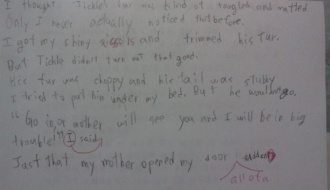 I thought Tickles fur was kind of tangled and matted
Only I never actually noticed that before.
I got my shiny scissors and trimmed his fur.
But Tickle didn't turn out that good.
His fur was choppy and his tail was stubby
I tried to put him under my bed. But he wouldn't go in.
"Go in, or mother will see you and I will be in big
trouble!" I said,
Just that my mother opened my door
all of a